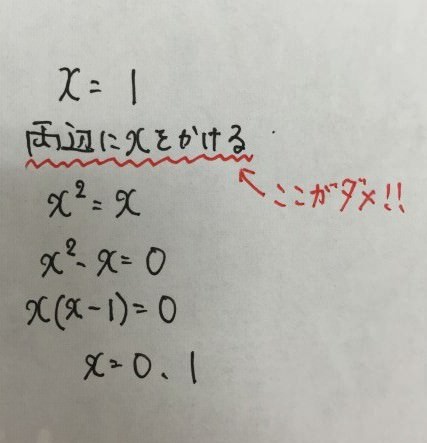 x = 1
両辺にxをかける
ここがダメ!!
x² = x
x² - x = 0
x(x-1) = 0
x = 0、1